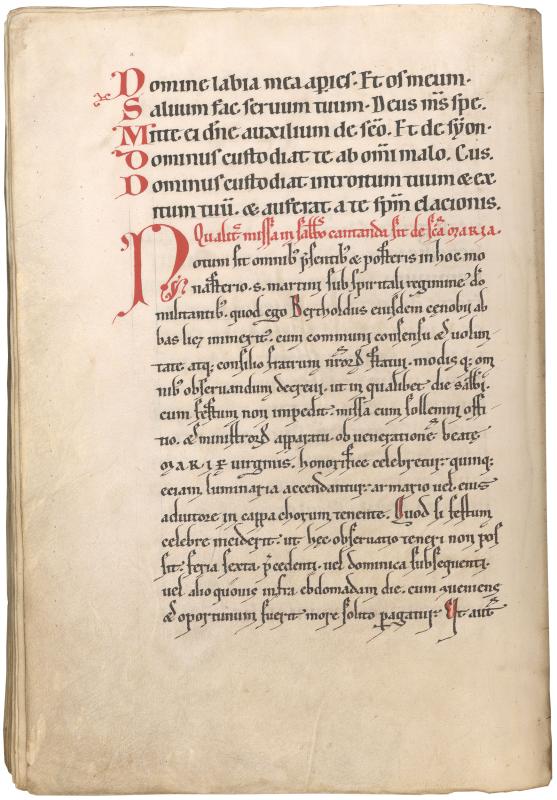 Domine labia mea ap̲ies. Et os meum.
Saluum fac seruum tuum. Deus m̅s spe.
Mitte ei dn̅e auxilium de sc̅o. Et de syon.
Dominus custodiat te ab om̅i malo. C̲us.
Dominus custodiat introitum tuum & ex
itum tuu̅. & auferat a te sp̅m elacionis.
Qualit̾ missa in sabb̅o cantanda sit de sc̅a MARIA.
Notum sit omnib; p̾sentib; & posteris in hoc mo
nasterio .s. martini sub spiritali regimine d̅o
militantib;. quod ego Bertholdus eiusdem cenobii ab
bas lic& inmerit̾. cum communi consensu & uolun
tate atq; consilio fratrum nr̅oꝝ statui. modis q; om
nib; obseruandum decreui. ut in qualibet die sabb̅i.
cum festum non impedit. missa cum sollemni offi
tio. & ministroꝝ apparatu. ob uenerationē beatę
MARIĘ uirginis. honorifice celebretur. quinq;
etiam luminaria accendantur. armario uel eius
adiutore in cappa chorum tenente. Quod si festum
celebre inciderit. ut hęc obseruatio teneri non pos
sit. feria sexta p̾cedenti. uel dominica subsequenti.
uel alio quouis infra ebdomadam die. cum ꝯueniens
& oportunum fuerit more solito ꝑagatur. Ut aut̅